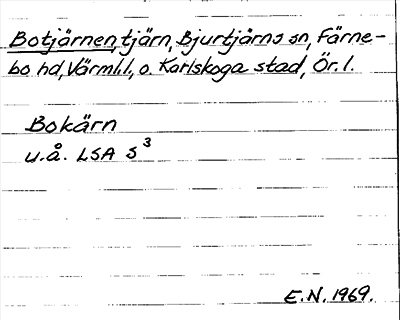 Botjärnen, tjärn, Bjurtjärns sn, Färne-
bo hd, Värml. l., o. Karlskoga stad, Ör. l.
Bokärn
u.å. LSA S³
E.N. 1969.